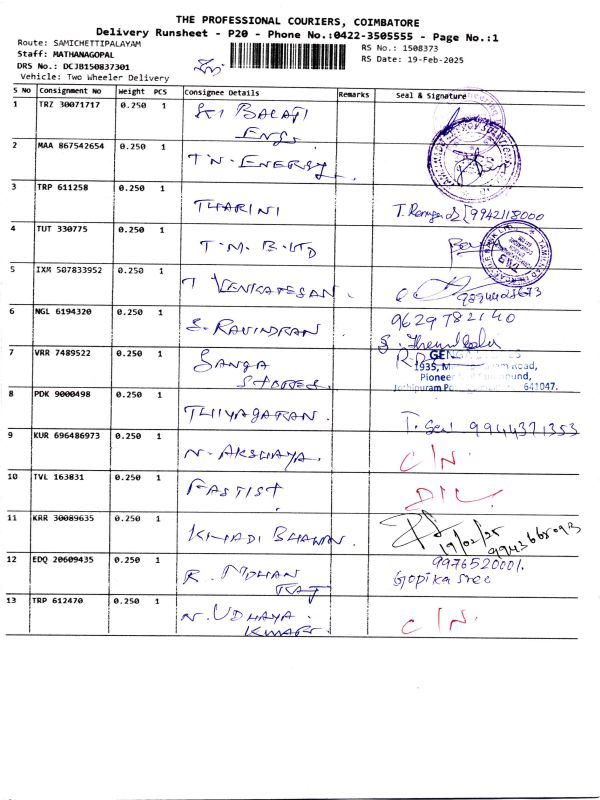 THE PROFESSIONAL COURIERS, COIMBATORE
Delivery Runsheet - P20 - Phone No.:0422-3505555 - Page No.:1
Route: SAMICHETTIPALAYAM
RS No.: 1508373
Staff: MATHANAGOPAL
RS Date: 19-Feb-2025
DRS No.: DCJB150837301
Vehicle: Two Wheeler Delivery
S No Consignment No Weight PCS Consignee Details Remarks Seal & Signature
1 TRZ 30071717 0.250 1 SRI BALAJI
ENGS.
2 MAA 867542654 0.250 1 T.N. ENERGY.
3 TRP 611258 0.250 1 THARINI 9942118000
4 TUT 330775 0.250 1 T.M.B.LTD
5 IXM 507833952 0.250 1 T VENKATESAN.
6 NGL 6194320 0.250 1 S. RAVINDRAN 9629782140
7 VRR 7489522 0.250 1 GANGA
STORES.
1935, Road,
Pioneer
Jothipuram 641047.
8 PDK 9000498 0.250 1 THIYAGARAN. 9944371353
9 KUR 696486973 0.250 1 N. AKSHAYA. C/N.
10 TVL 163831 0.250 1 FASTIST. D/L.
11 KRR 30089635 0.250 1 KHADI BHAVAN. 19/02/25
9943668093
12 EDQ 20609435 0.250 1 R. MOHAN
RAJ
9976520001.
Gopika sree
13 TRP 612470 0.250 1 N. UDHAYA
KUMAR. C/N.